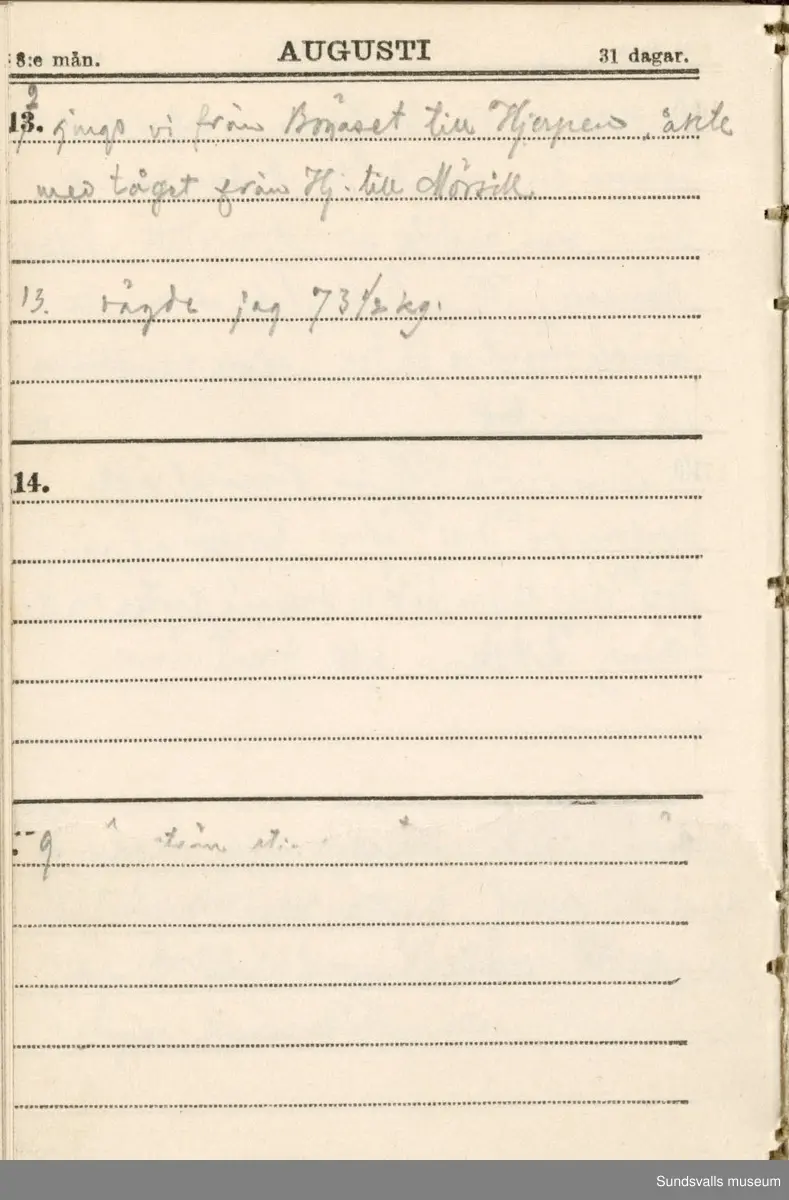 8:e mån. AUGUSTI 31 dagar.
2
13. vi från till Hjerpen, åkte
med tåget från Hj. till Mörsill.
13. vägde jag 73 1/2 kg.
14.
9
Sundsvalls museum